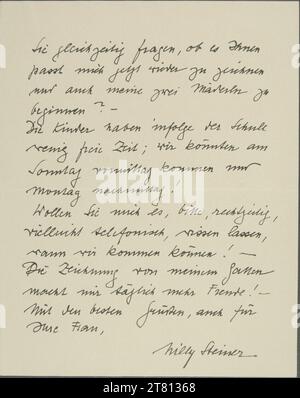 Sie gleichzeitig fragen, ob es Ihnen
passt mich jetzt wieder zu zeichnen
und auch meine zwei Mäderln zu
beginnen? –
Die Kinder haben infolge der Schule
wenig freie Zeit; wir könnten am
Sonntag vormittag kommen und
Montag nachmittag!
Wollen Sie mich es, bitte, rechtzeitig,
vielleicht telefonisch, wissen lassen,
wann wir kommen können! –
Die Zeichnung von meinem Gatten
macht mir täglich mehr Freude! –
Mit den besten Grüßen, auch für
Ihre Frau,
Milly Steiner
alamy
Image ID: 2T81368
www.alamy.com